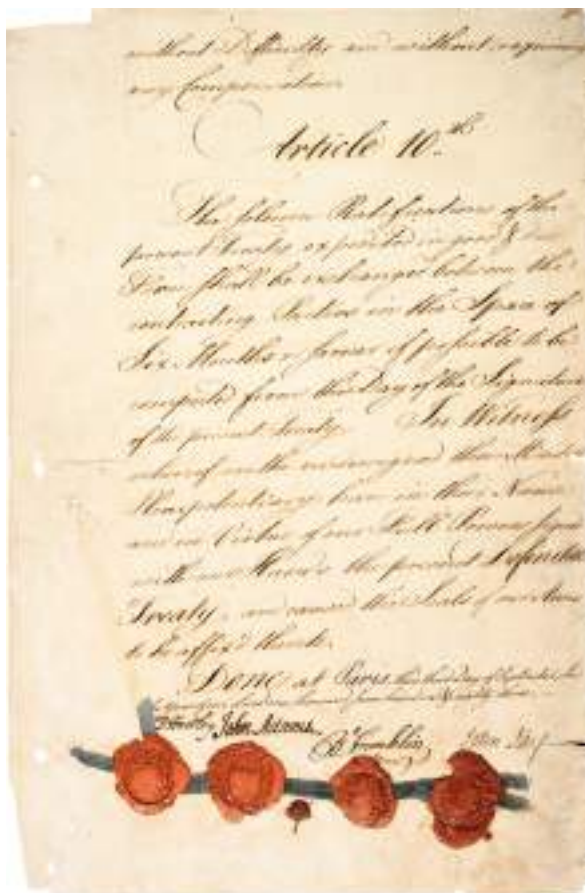 without Difficulty and without requiring
any Compensation.
Article 10.th
The solemn Ratifications of the
present Treaty expedited in good & due
Form shall be exchanged between the
contracting Parties in the Space of
Six Months or sooner if possible to be
computed from the Day of the Signature
of the present Treaty. In Witness
whereof we the undersigned their
Plenipotentiary have in their Name
and in Virtue of our Full Powers signed
with our Hands the present Definitive
Treaty, and caused the Seals of our Arms
to be affix'd thereto.
Done at Paris, this third Day of September,
one thousand seven hundred & eighty three.
D Hartley John Adams
B Franklin John Jay